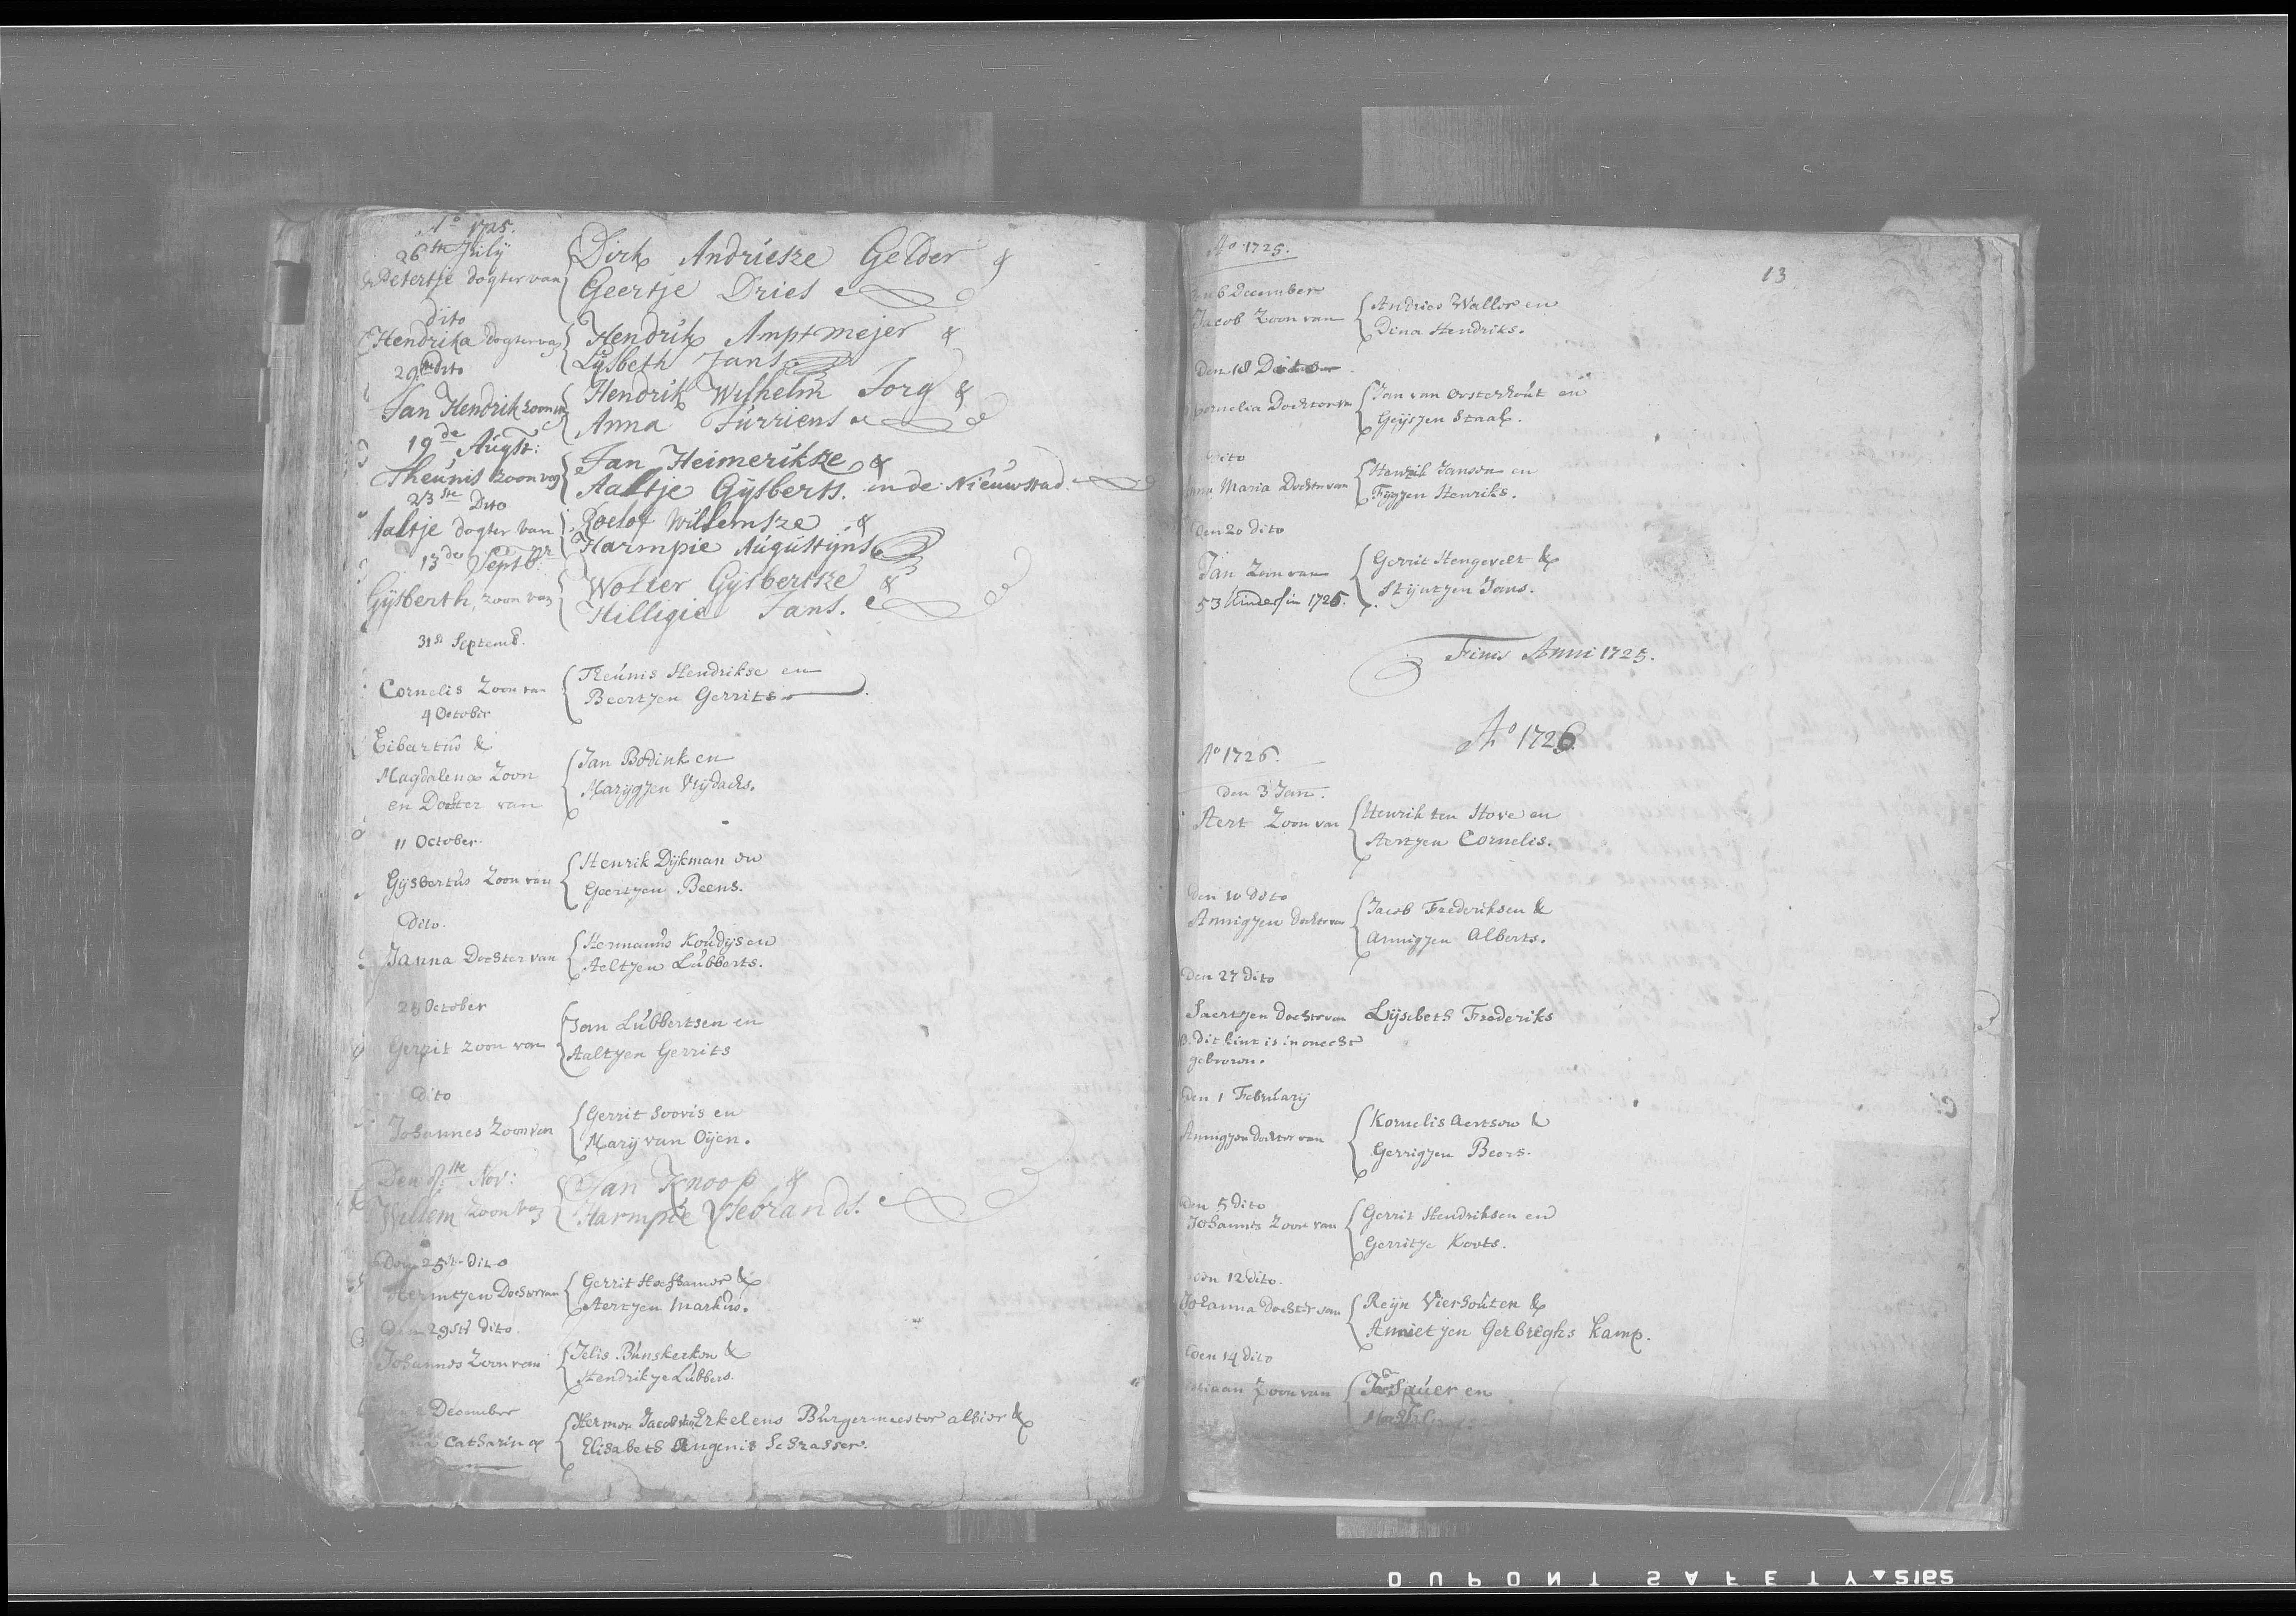 Ao 1725.
26ste Júlij
Petertje dogter van
Dirk Andriesze Gelder &
Geertje Dries
dito
Hendrika dogter van
Hendrik Amptmejer &
Lijsbeth Jans
29ste Dito
Jan Hendrik zoon van
Hendrik Wilhelm Jorg &
Anna Jurriens
19de Augst:
Theunis zoon van
Jan Heimerikze &
Aaltje Gijsberts. in de Nieuwstad.
23ste Dito
Aaltje dogter van
Roelof Willemsze &
Harmpie Augustijns
13de Septbr
Gijsberth, zoon van
Wolter Gijsbertsze &
Hilligie Jans.
31st Septemb.
Cornelis Zoon van
Theúnis Hendrikse en
Beertjen Gerrits
4 October
Eibartús &
Magdalena Zoon
en Dochter van
Jan Bodink en
Marijgjen Vrijdachs.
11 October.
Gijsbertús Zoon van
Henrik Dijkman en
Geertjen Beens.
Dito.
Janna Dochter van
Hermanús Koúdijs en
Aeltjen Lúbberts.
October
Gerrit Zoon van
Jan Lúbbertsen en
Aaltjen Gerrits
Dito
Johannes Zoon van
Gerrit Sooris en
Marij van Oijen.
Den 8ste Nov:
Willem Zoon van
Jan Knoop &
Harmpie IJsebrands.
Den 25ste dito
Hermtjen Dochter van
Gerrit Hochamer &
Aertjen Markús.
Den 29ste dito.
Johannes Zoon van
Jelis Búnskerken &
Hendrikje Lúbbers.
December
Catharina
Herman Jacob van Erkelens Búrgermeester alhier &
Elisabeth Eugenis Schrasser.
13
Ao 1725.
Den 6 December
Jacob Zoon van
Andries Waller en
Dina Hendriks.
Den 18 Dito
Cornelia Dochter van
Jan van Oosterhoút en
Geijsjen Staal.
Dito
Anna Maria Dochter van
Henrik Janson en
Fijgjen Henriks.
Den 20 dito
Jan Zoon van
Gerrit Hengevelt &
Stijntjen Jans.
53 kinders in 1725.
Finis Anni 1725.
Ao 1726
Ao 1726.
den 3 Jan.
Aert Zoon van
Henrik ten Hove en
Aertjen Cornelis.
Den 10 dito
Annigjen dochter van
Jacob Frederiksen &
Annigjen Alberts.
Den 27 dito
Saertjen dochter van Lijsebeth Frederiks
Dit kint is in onecht
gebooren.
Den 1 Febrúarij
Annigjen dochter van
Kornelis Aertsen &
Gerrigjen Beers.
Den 5 dito
Johannes Zoon van
Gerrit Hendriksen en
Gerritje Koots.
Den 12 dito.
Johanna dochter van
Reijn Vierhoúten &
Annietjen Gerbreghs kamp.
Den 14 dito
Zoon van
Saúer en